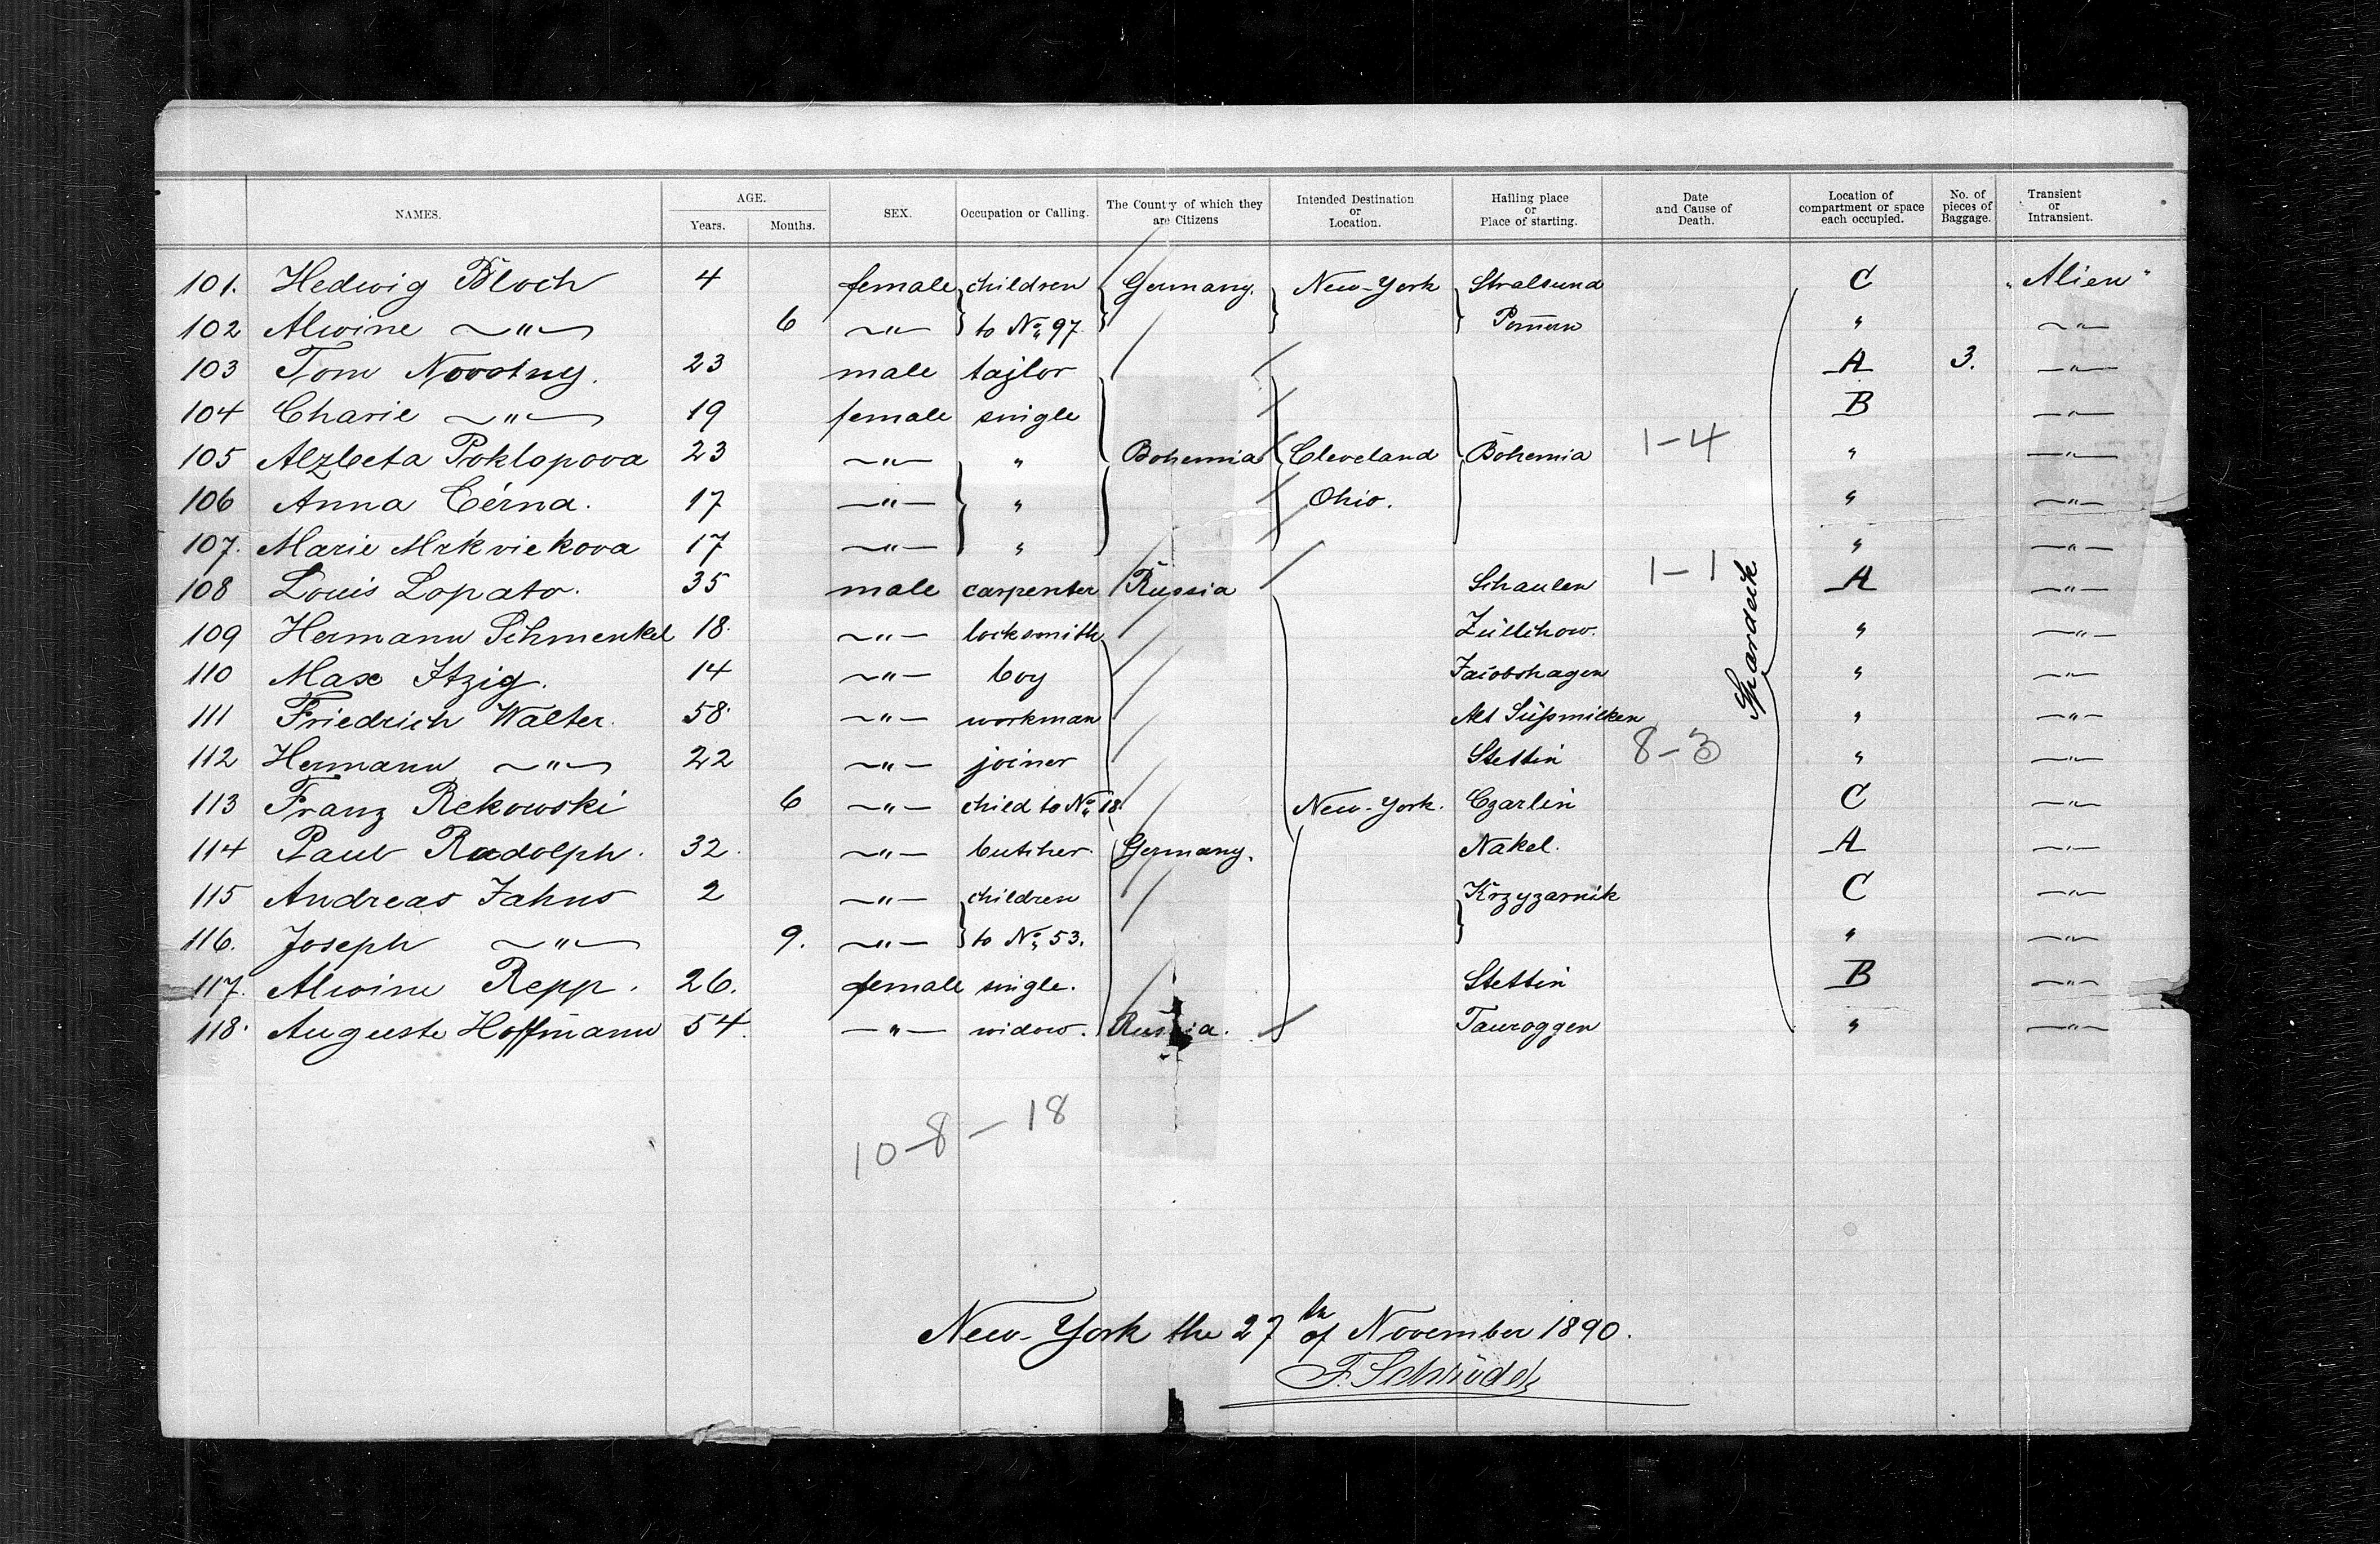 NAMES. AGE. SEX. Occupation or Calling. The County of which they are Citizens Intended Destination or Location. Hailing place or Place of starting. Date and Cause of Death. Location of compartment or space each occupied. No. of pieces of Baggage. Transient or Intransient.
Years. Months.
101. Hedwig Bloch 4 female children Germany. New-York Stralsund C "Alien"
102 Alwine ~"~ 6 ~"~ to No. 97 Pommern " ~"~
103 Tom Novotny. 23 male tajlor A 3. ~"~
104 Charie ~"~ 19 female single B ~"~
105 Alzbeta Poklopova 23 ~"~ " Bohemia Cleveland Bohemia 1-4 " ~"~
106 Anna Cérna. 17 ~"~ " Ohio. " ~"~
107. Marie Mrkvickova 17 ~"~ " " ~"~
108 Louis Lopato. 35 male carpenter Russia Schaulen 1-1 A ~"~
109 Hermann Schmenkel 18. ~"~ locksmith Züllchow. " ~"~
110 Max Itzig. 14 ~"~ boy Jacobshagen " ~"~
111 Friedrich Walter. 58 ~"~ workman Alt Süßmilken " ~"~
112 Hermann ~"~ 22 ~"~ joiner Stettin 8-3 " ~"~
113 Franz Rekowski 6 ~"~ child to No. 18. New-York. Czarlin C ~"~
114 Paul Radolph. 32. ~"~ butcher. Germany. Nakel. A ~"~
115 Andreas Jahns 2 ~"~ children Krzyzarnik C ~"~
116. Joseph ~"~ 9. ~"~ to No. 53. " ~"~
117. Alwine Repp. 26. female single. Stettin B ~"~
118. Auguste Hoffmann 54. ~"~ widow. Russia. Tauroggen " ~"~
Spardeck
10-8-18
New-York the 27th of November 1890.
F. Schröder